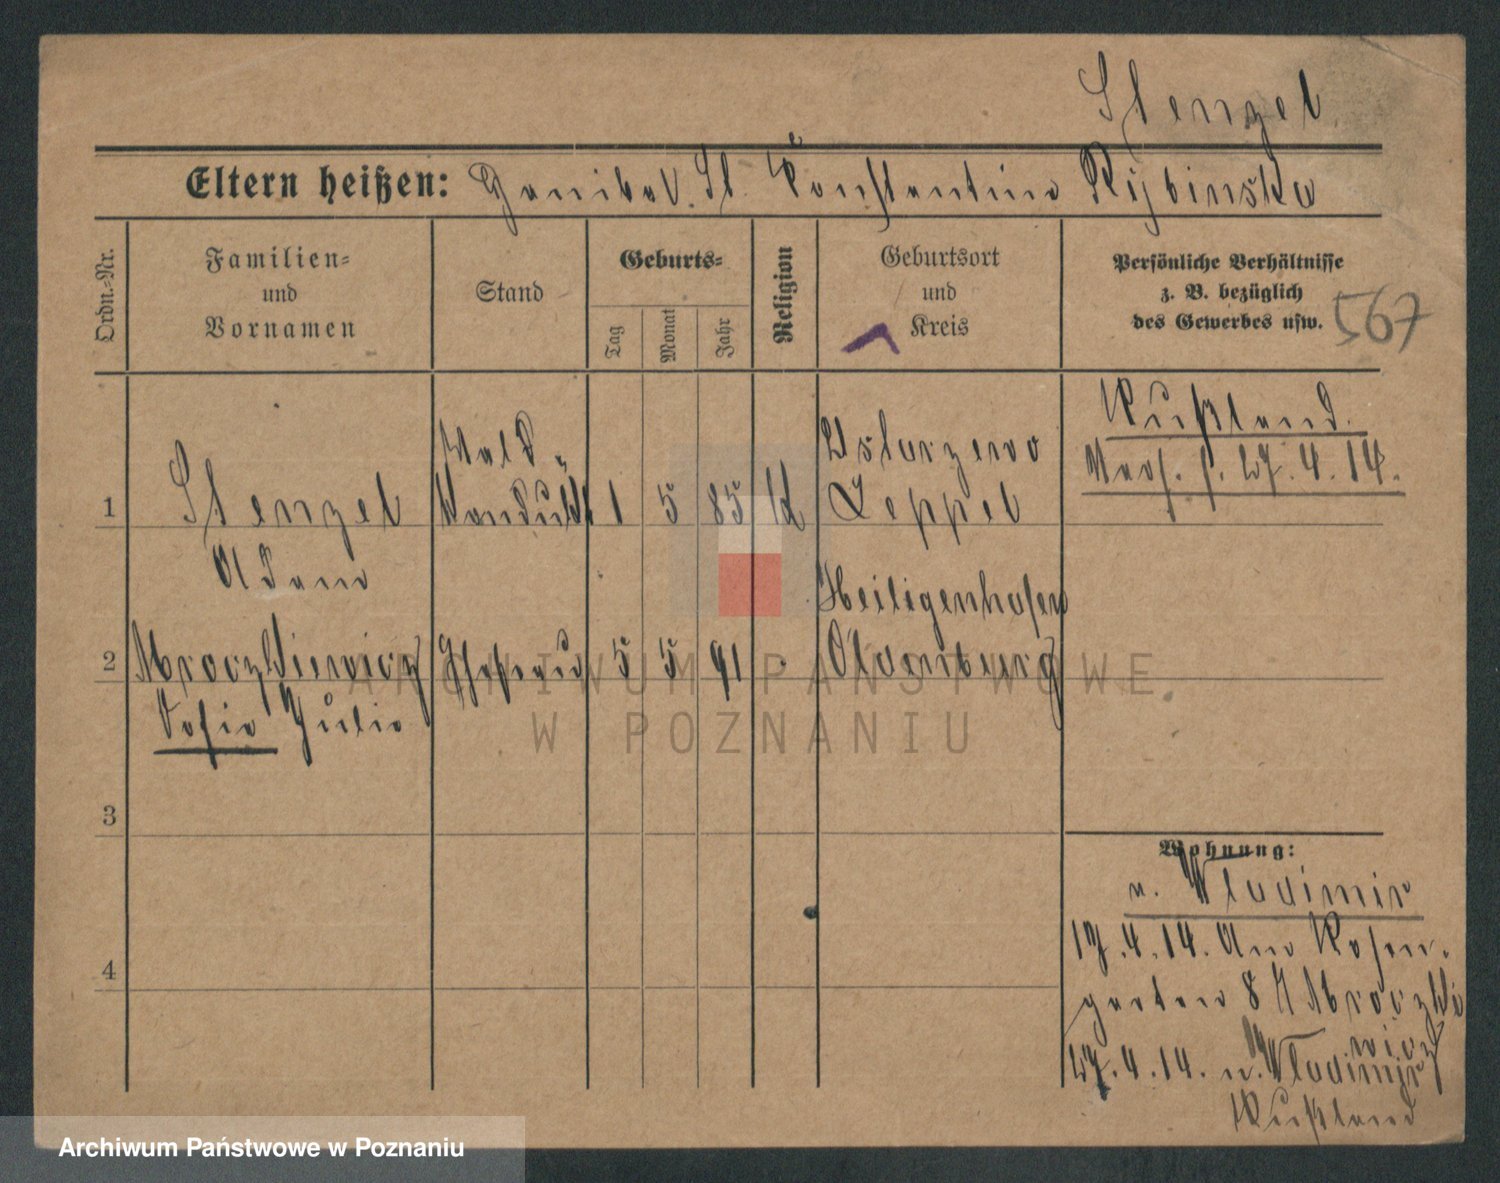 Stenzel
Eltern heißen: Hanibal. St. Konstantina Rybinska
Ordn.-Nr.
Familien-
und
Vornamen
Stand
Geburts-
Tag
Monat
Jahr
Religion
Geburtsort
und
Kreis
Persönliche Verhältnisse
z. B. bezüglich
des Gewerbes usw.
567
1
Stenzel
Adam
Wald-
1 5 85 kt
Ustarzewo
Zeppel
Rußland.
27.4.14.
2
Mroczkiewicz
Sofia Julia
Ehefrau
5 5 91
Heiligenhafen
Oldenburg
3
4
Wohnung:
n. Wlodimir
17.4.14. Am Rosen-
garten 8 Mroczki
wicz
27.4.14. n. Wlodimir
Rußland
ARCHIWUM PAŃSTWOWE
W POZNANIU
Archiwum Państwowe w Poznaniu